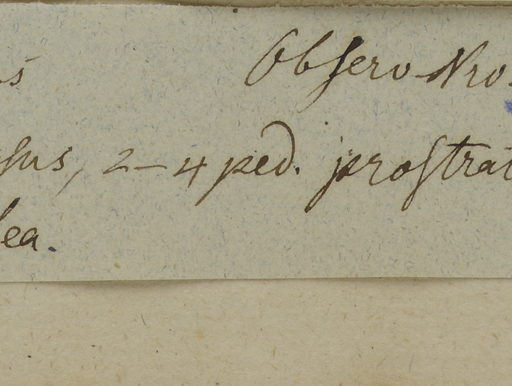 Observ Nro.
sus, 2-4 ped. prostrat
lea.